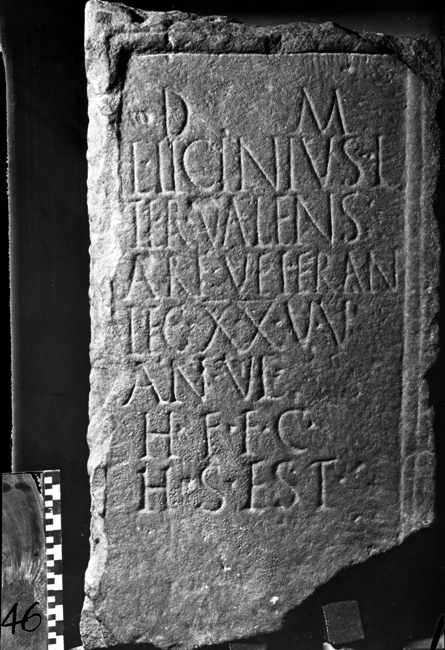 D M
L·LICINIVS·L
TER·VALENS
ARE·VETERAN
LEG·XX·VV
AN·VL
H·F·F·C·
H·S·EST
46